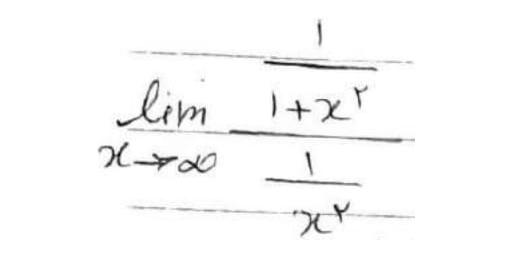 lim x→∞ (1/(1+x²))/(1/x²)